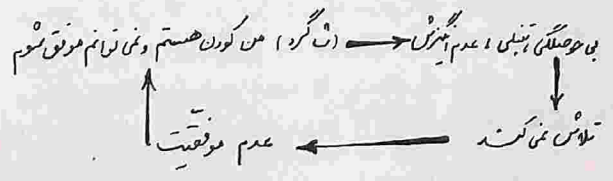 بی حوصلگی، تنبلی، عدم انگیزش ← (شاگرد) من کودن هستم و نمی توانم موفق شوم
تلاش نمی کند ← عدم موفقیت